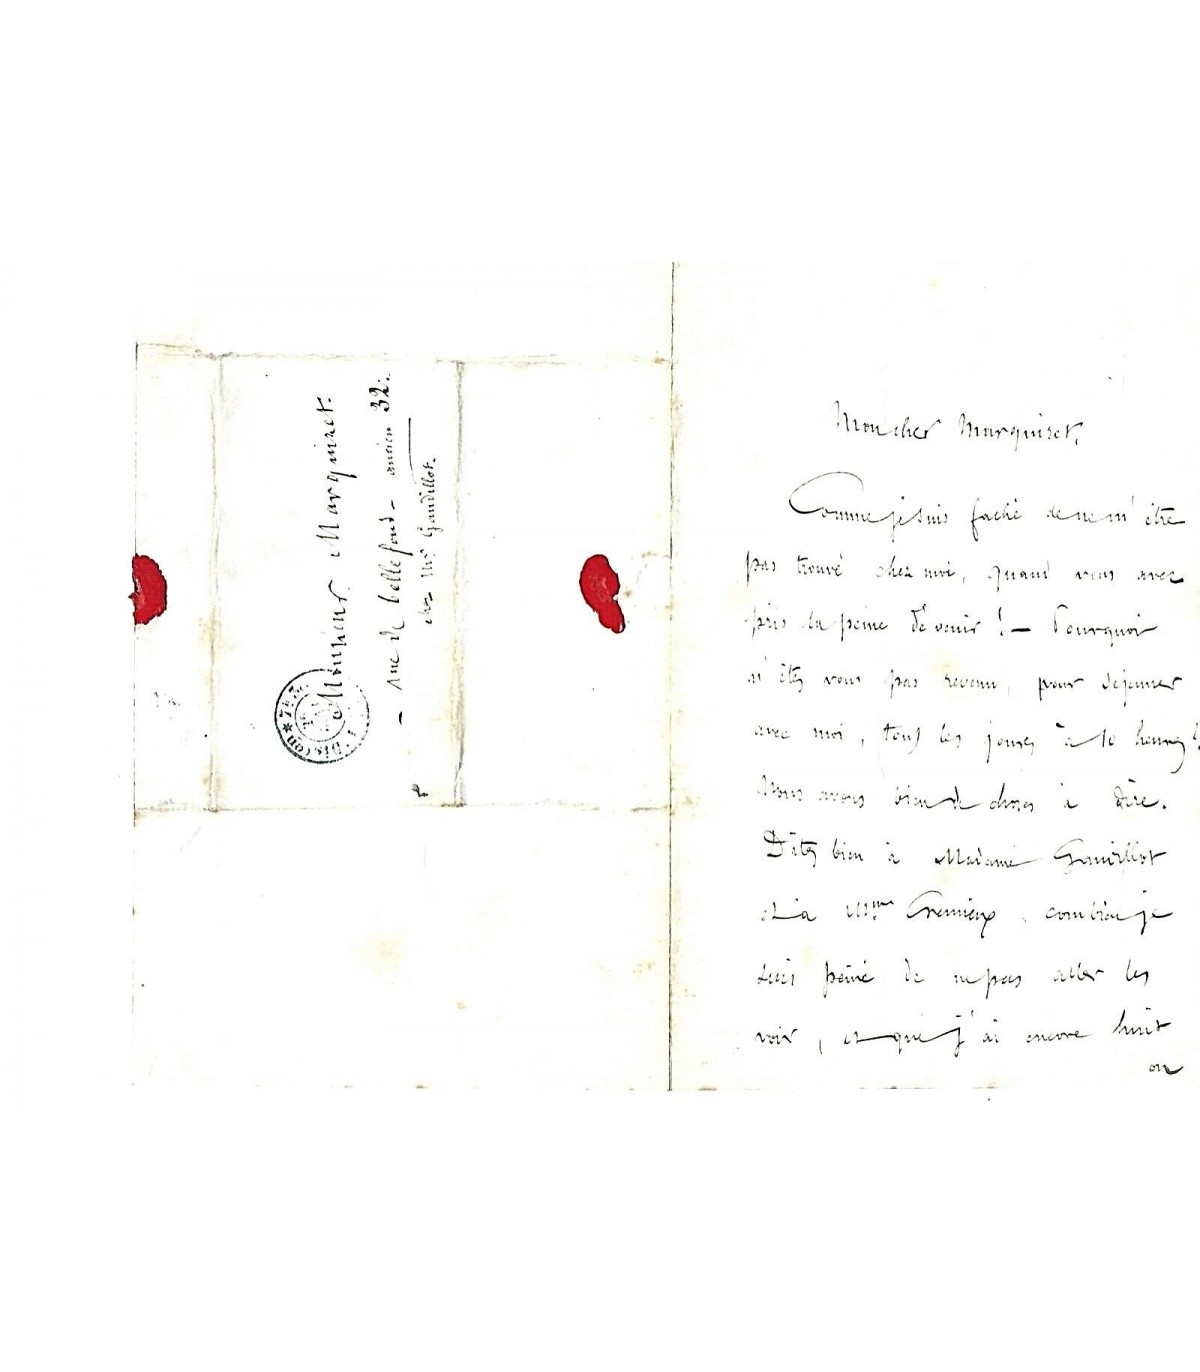 Monsieur Marquiset.
— rue de bellefond — ancien 32.
chez Mr. Gaudillot.
Mon cher Marquiset,
Comme je suis faché de ne m'être
pas trouvé chez moi, quand vous avez
pris la peine de venir ! — Pourquoi
n'êtes vous pas revenu, pour déjeuner
avec moi, tous les jours à 10 heures ?
Nous avons bien de choses à dire.
Dites bien à Madame Gaudillot
et à Mme Cremieux, combien je
suis peiné de ne pas aller les
voir, et que j'ai encore huit
ou